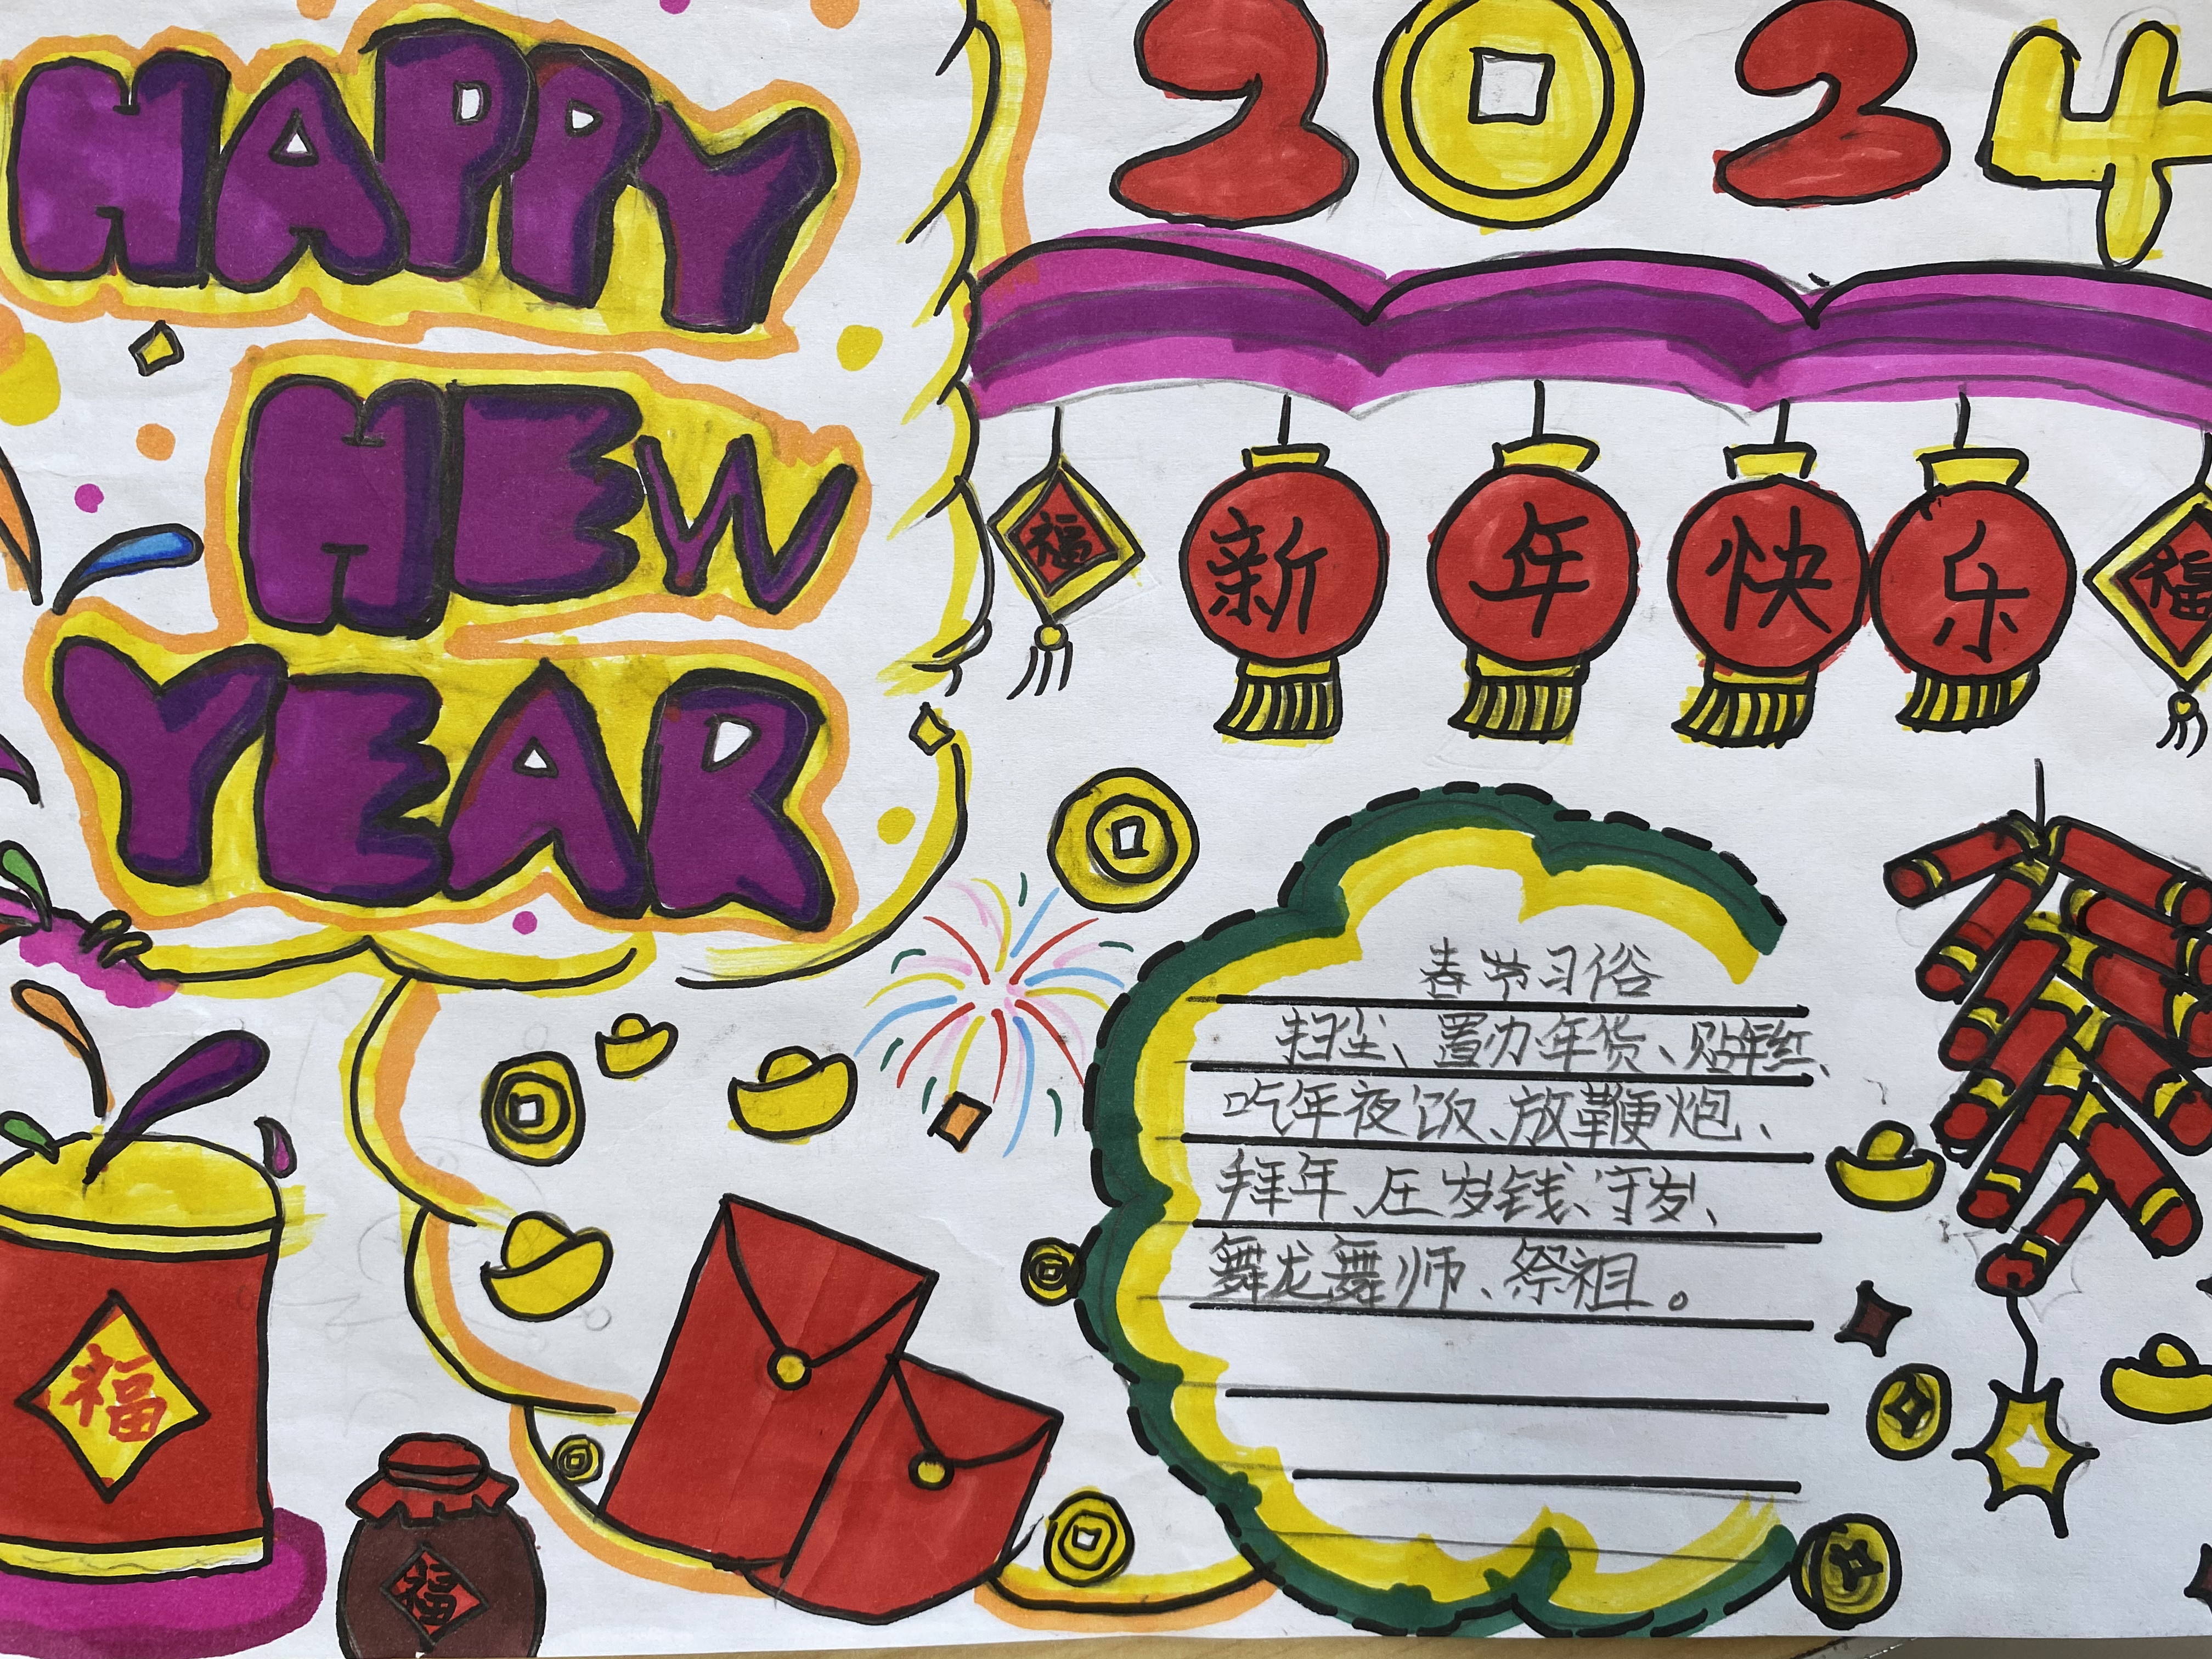 HAPPY
HEW
YEAR
2024
福
新年快乐
福
春节习俗
扫尘、置办年货、贴年红、
吃年夜饭、放鞭炮、
拜年、压岁钱、守岁、
舞龙舞师、祭祖。
福
福